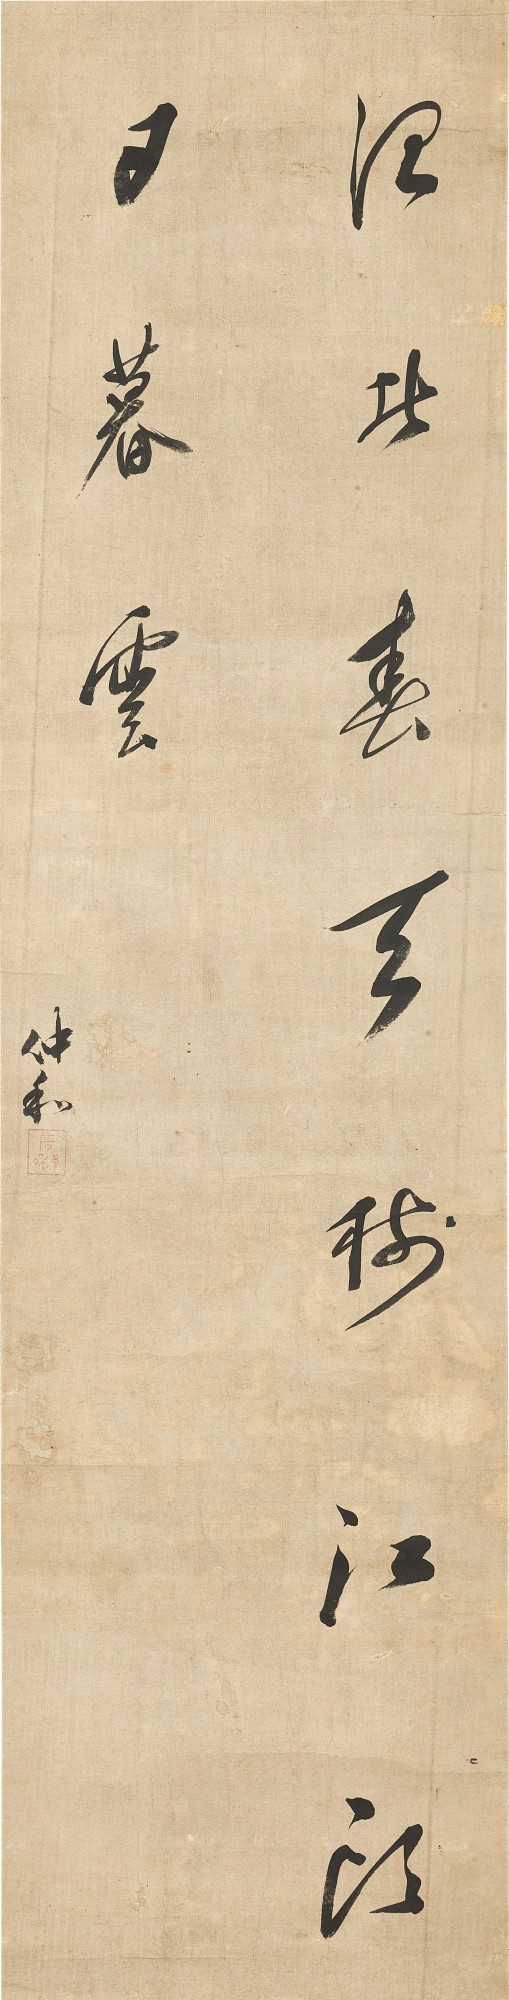 渭北春天樹江頭
日暮雲
仲和